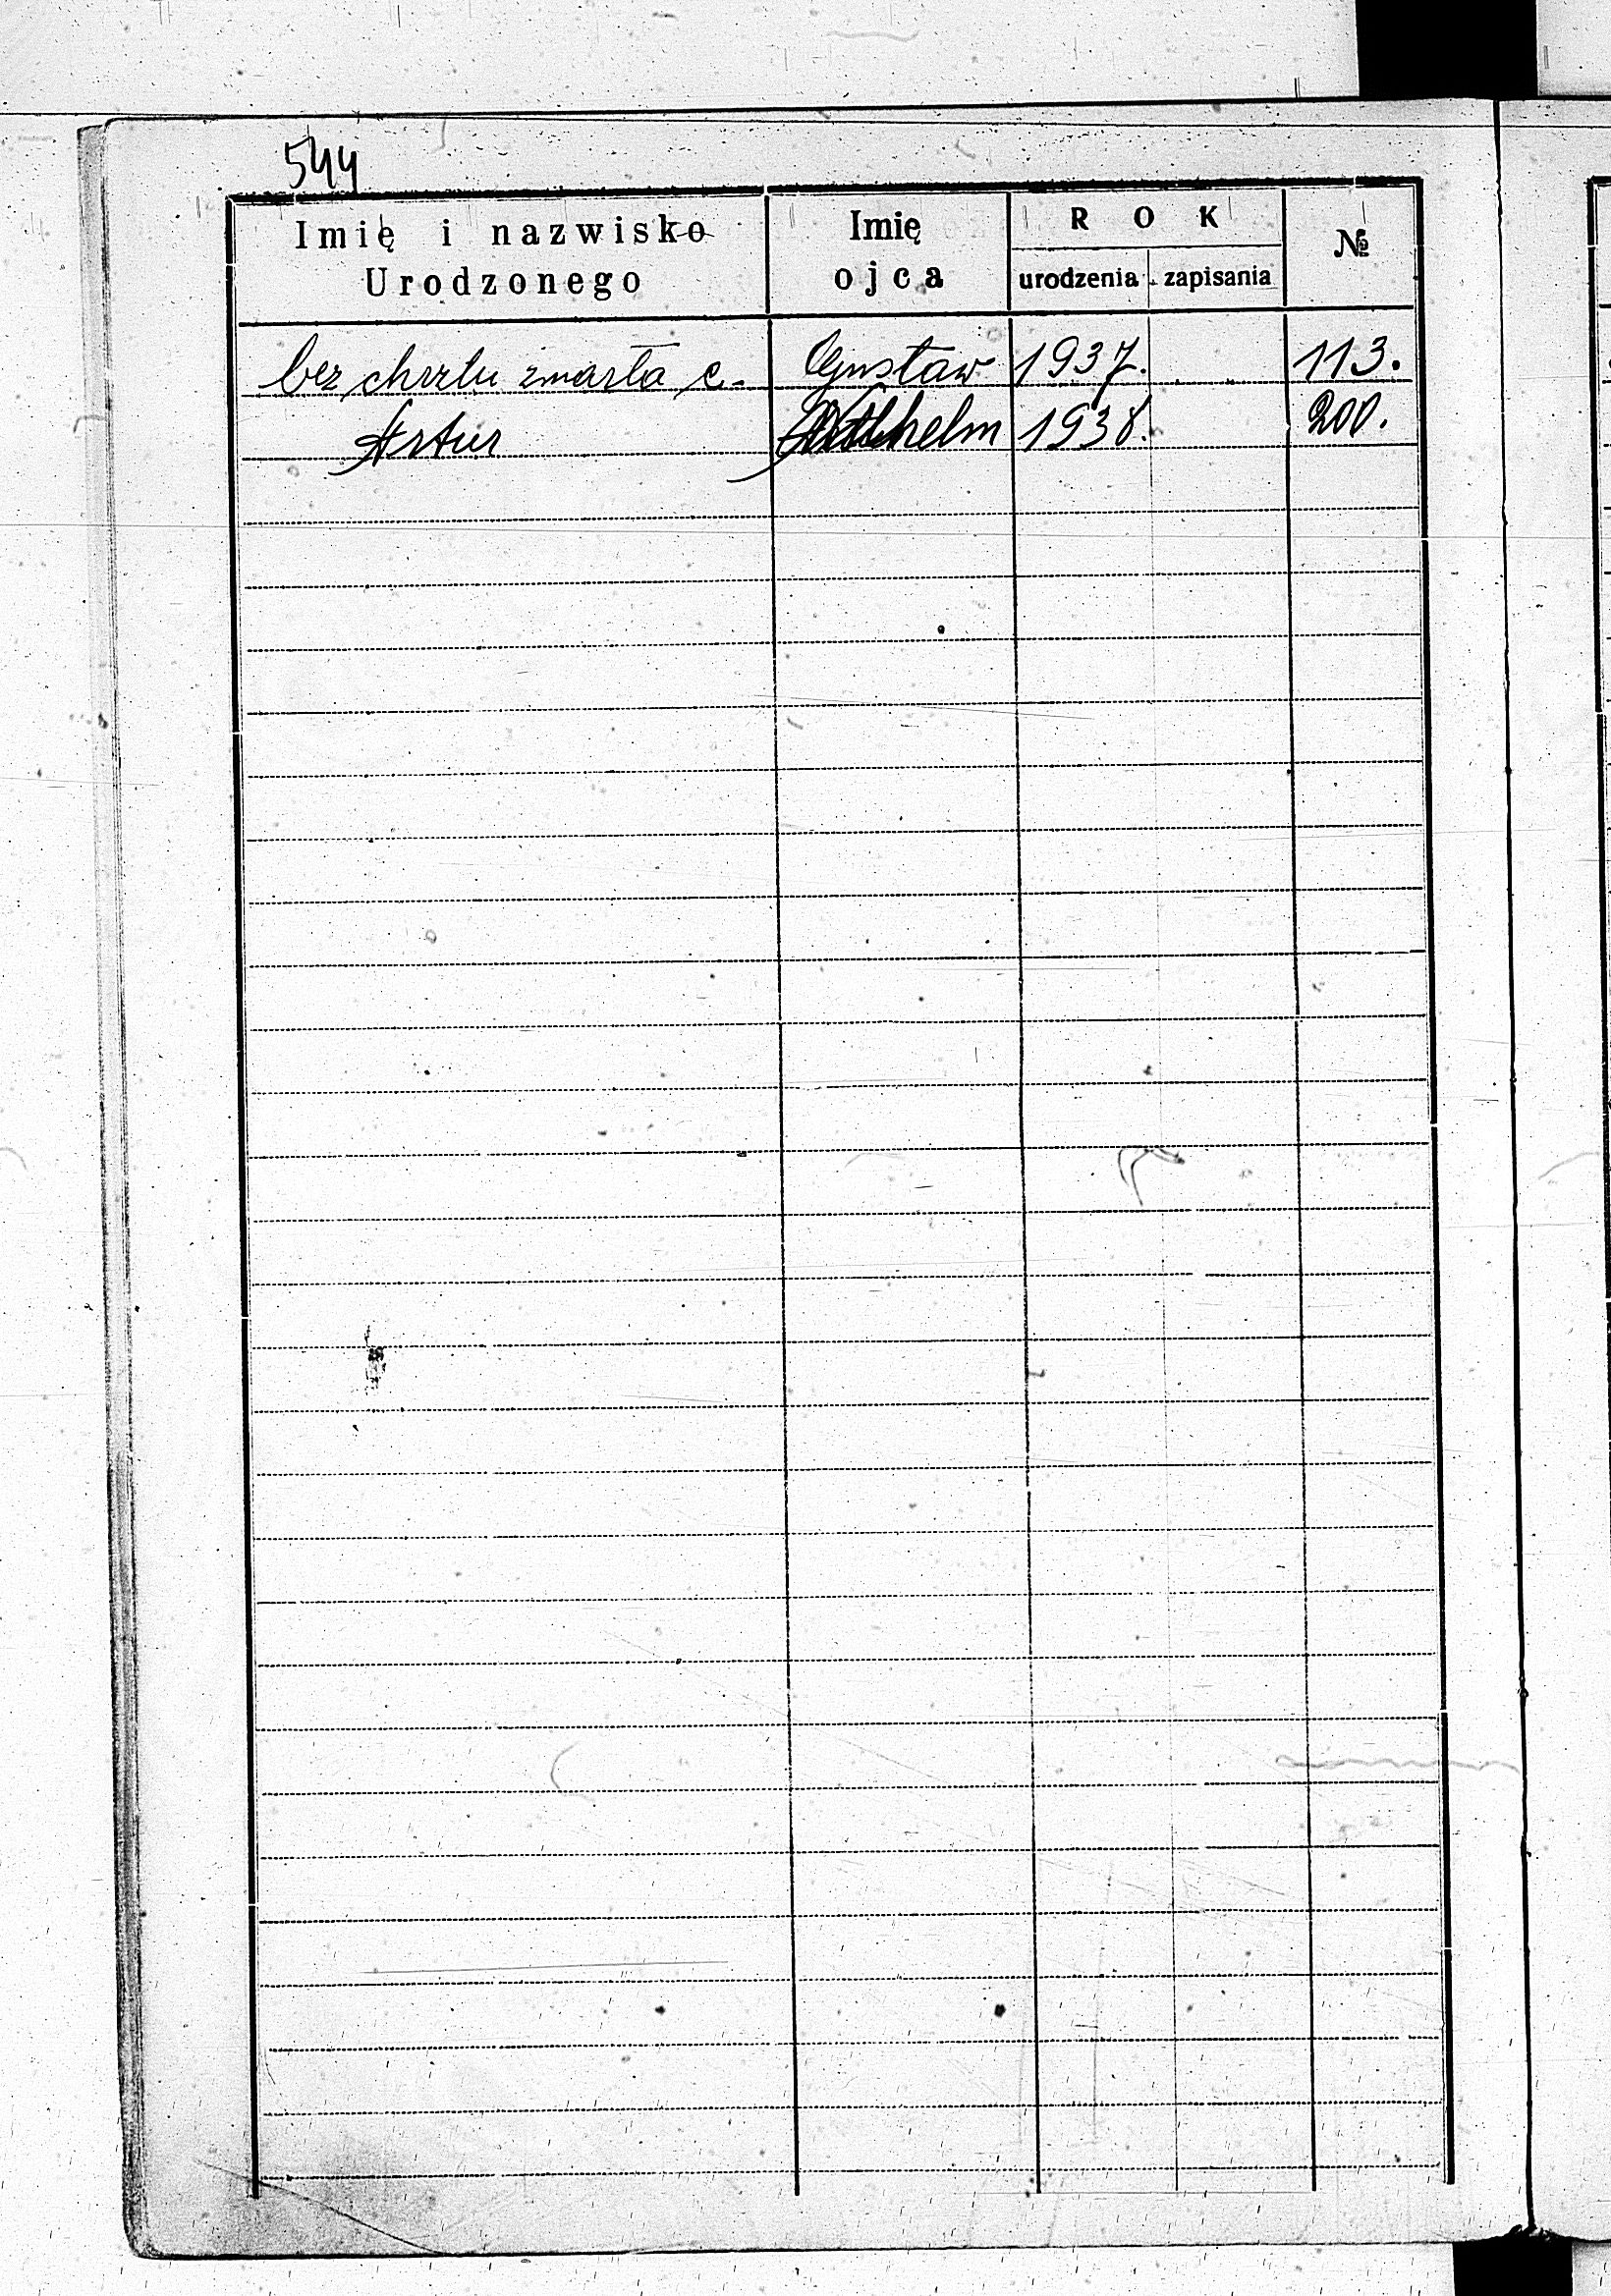 544
Imię i nazwisko Urodzonego
Imię ojca
ROK
urodzenia zapisania
№
bez chrztu zmarła c. Gustaw 1937. 113.
Artur Wilhelm 1938. 200.